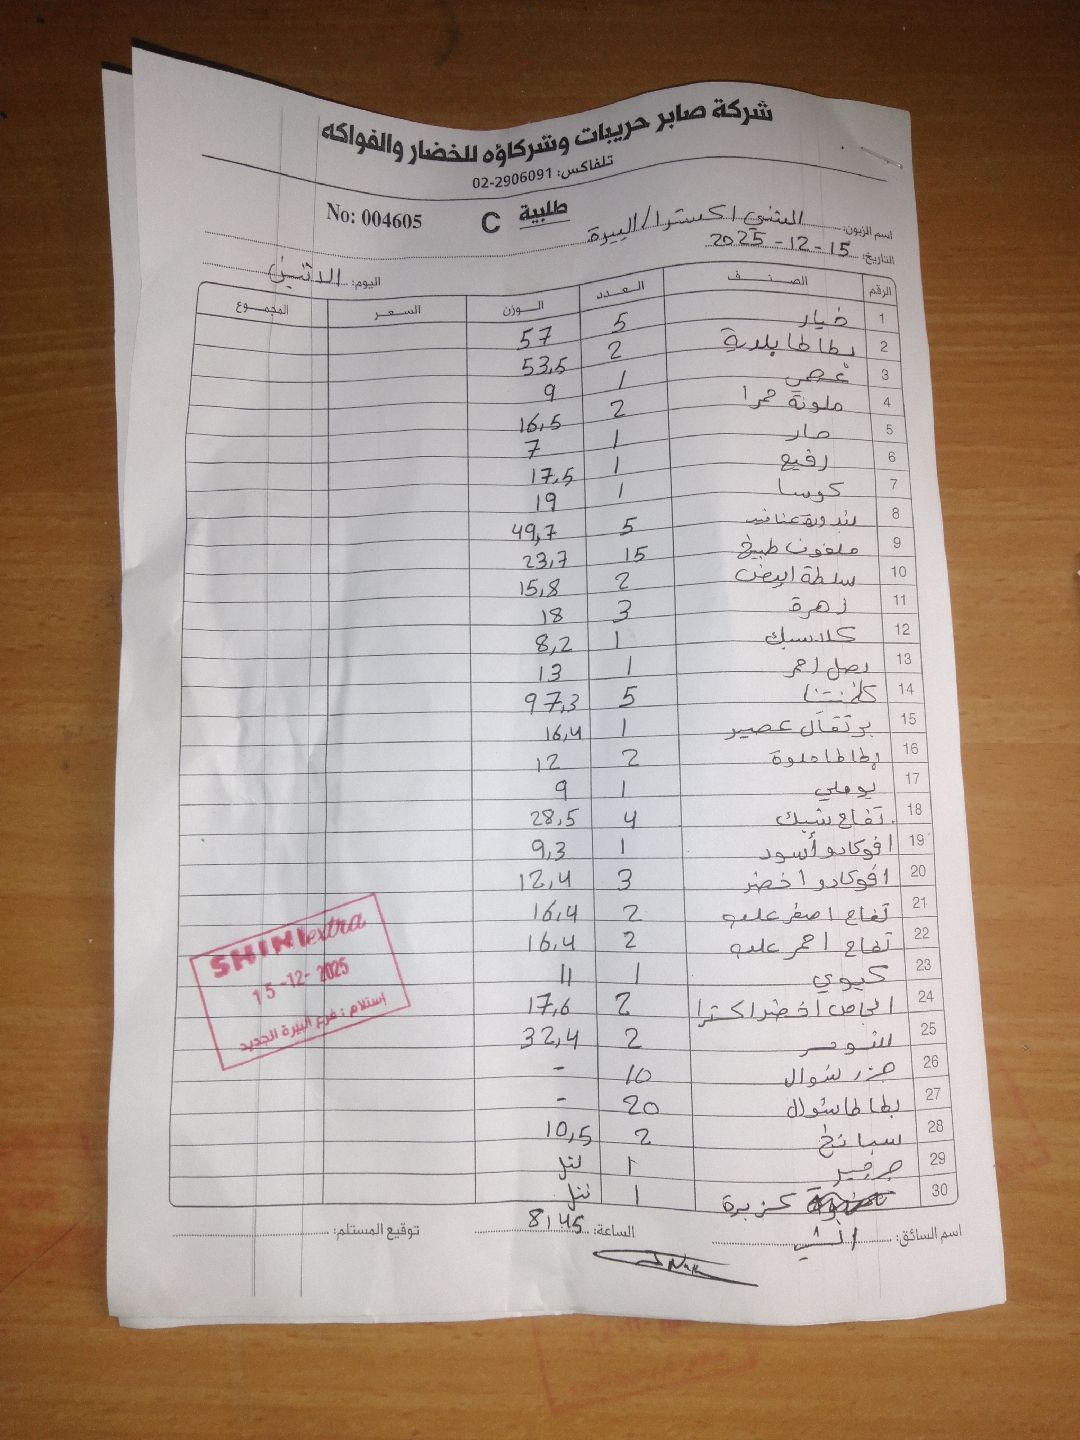 شركة صابر حريبات وشركاؤه للخضار والفواكه
تلفاكس: 02-2906091
No: 004605 C طلبية
اسم الزبون: الشني اكسترا/البيرة
التاريخ: 15-12-2025
اليوم: الاثنين
الرقم الصنف العدد الوزن السعر المجموع
1 خيار 5 57
2 بطاطا بلدية 2 53,5
3 1 9
4 ملونة حمرا 2 16,5
5 حار 1 7
6 رفيع 1 17,5
7 كوسا 1 19
8 بندورة عناقيد 5 49,7
9 ملفوف طبيخ 15 23,7
10 سلطة ابيض 2 15,8
11 زهرة 3 18
12 1 8,2
13 بصل احمر 1 13
14 كلمنتنا 5 97,3
15 برتقال عصير 1 16,4
16 بطاطا حلوة 2 12
17 بوملي 1 9
18 تفاح شبك 4 28,5
19 افوكادو أسود 1 9,3
20 افوكادو اخضر 3 12,4
21 تفاح اصفر علب 2 16,4
22 تفاح احمر علب 2 16,4
23 كيوي 1 11
24 اجاص اخضر اكسترا 2 17,6
25 2 32,4
26 جزر شوال 10 -
27 بطاطا شوال 20 -
28 سبانخ 2 10,5
29 جرجير 1
30 كزبرة 1
SHINI extra
15-12-2025
استلام : فرع البيرة الجديد
اسم السائق:
الساعة: 8,45
توقيع المستلم: